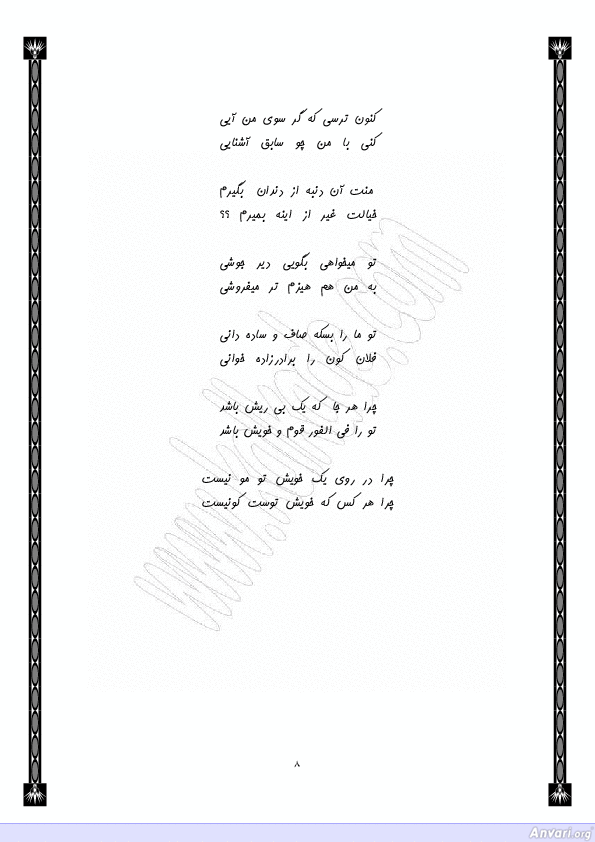 کنون ترسی که گر سوی من آیی
کنی با من چو سابق آشنایی
منت آن دنبه از دندان بگیرم
خیالت غیر از اینه بمیرم ؟؟
تو میخواهی بگویی دیر جوشی
به من هم هیزم تر میفروشی
تو ما را بسکه صاف و ساده دانی
فلان کون را برادرزاده خوانی
چرا هر جا که یک بی ریش باشد
تو را فی الفور قوم و خویش باشد
چرا در روی یک خویش تو مو نیست
چرا هر کس که خویش توست کونیست
۸
Anvari.org